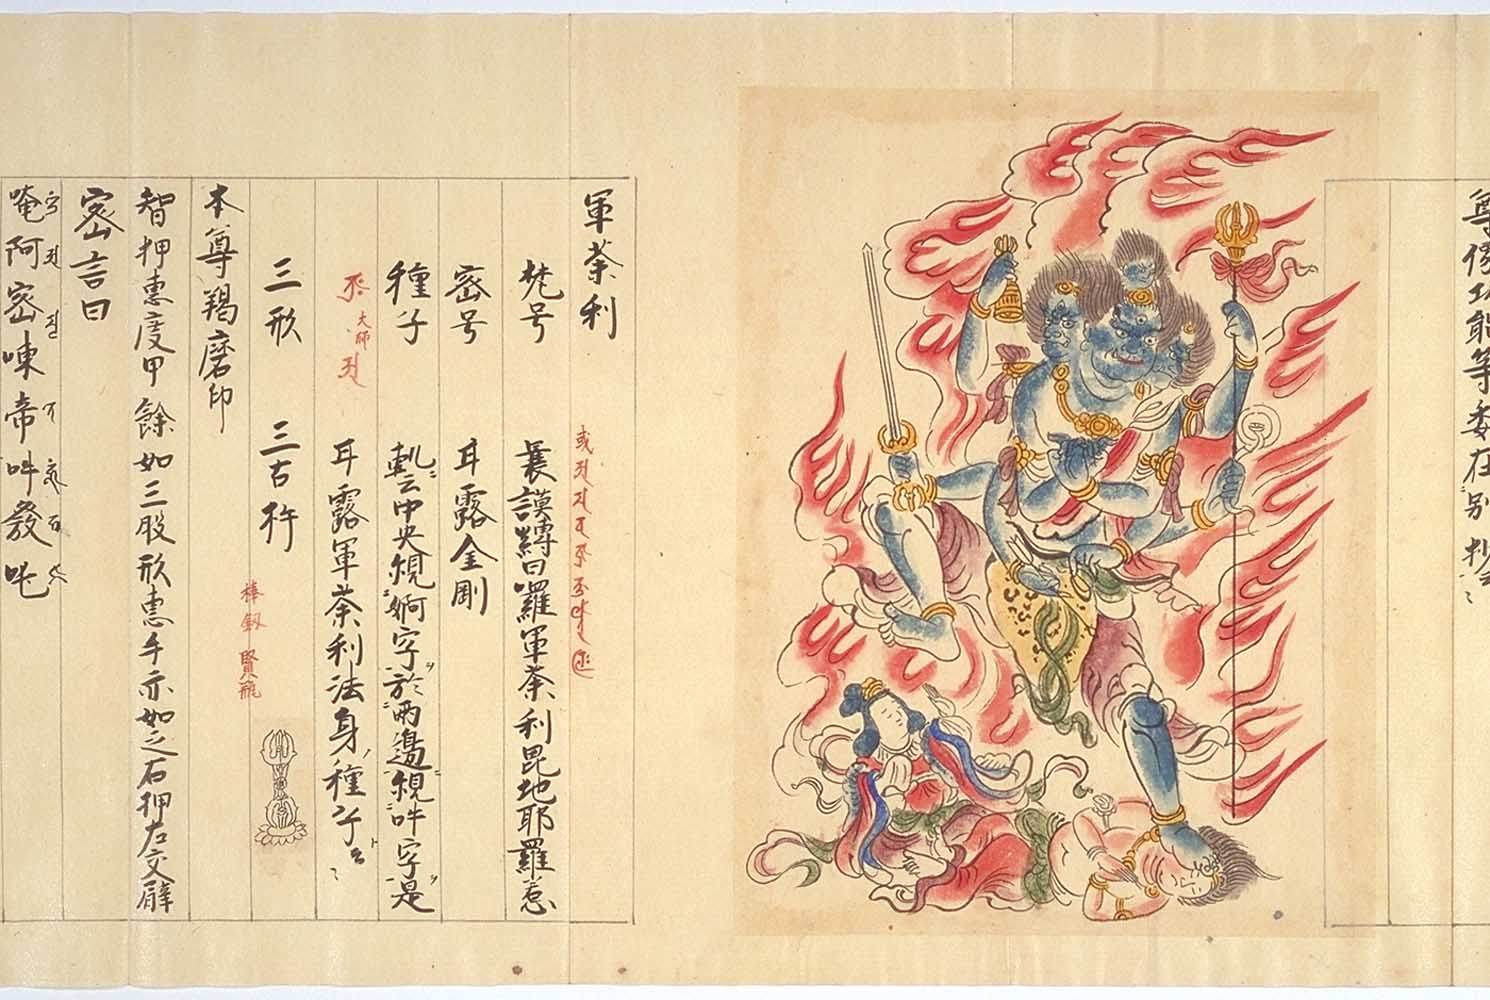 尊儀功能等委在別抄云〻
軍荼利
梵号 曩謨縛日囉軍荼利毘地耶羅惹
密号 甘露金剛
種子 中央想字於兩邊想吽字是
大師
甘露軍荼利法身種子云〻
三形 三古杵
棒釼 賢瓶
本尊羯磨印
智押惠度甲餘如三股形惠手亦如之右押左交臂
密言曰
唵阿密㗚帝吽發吒